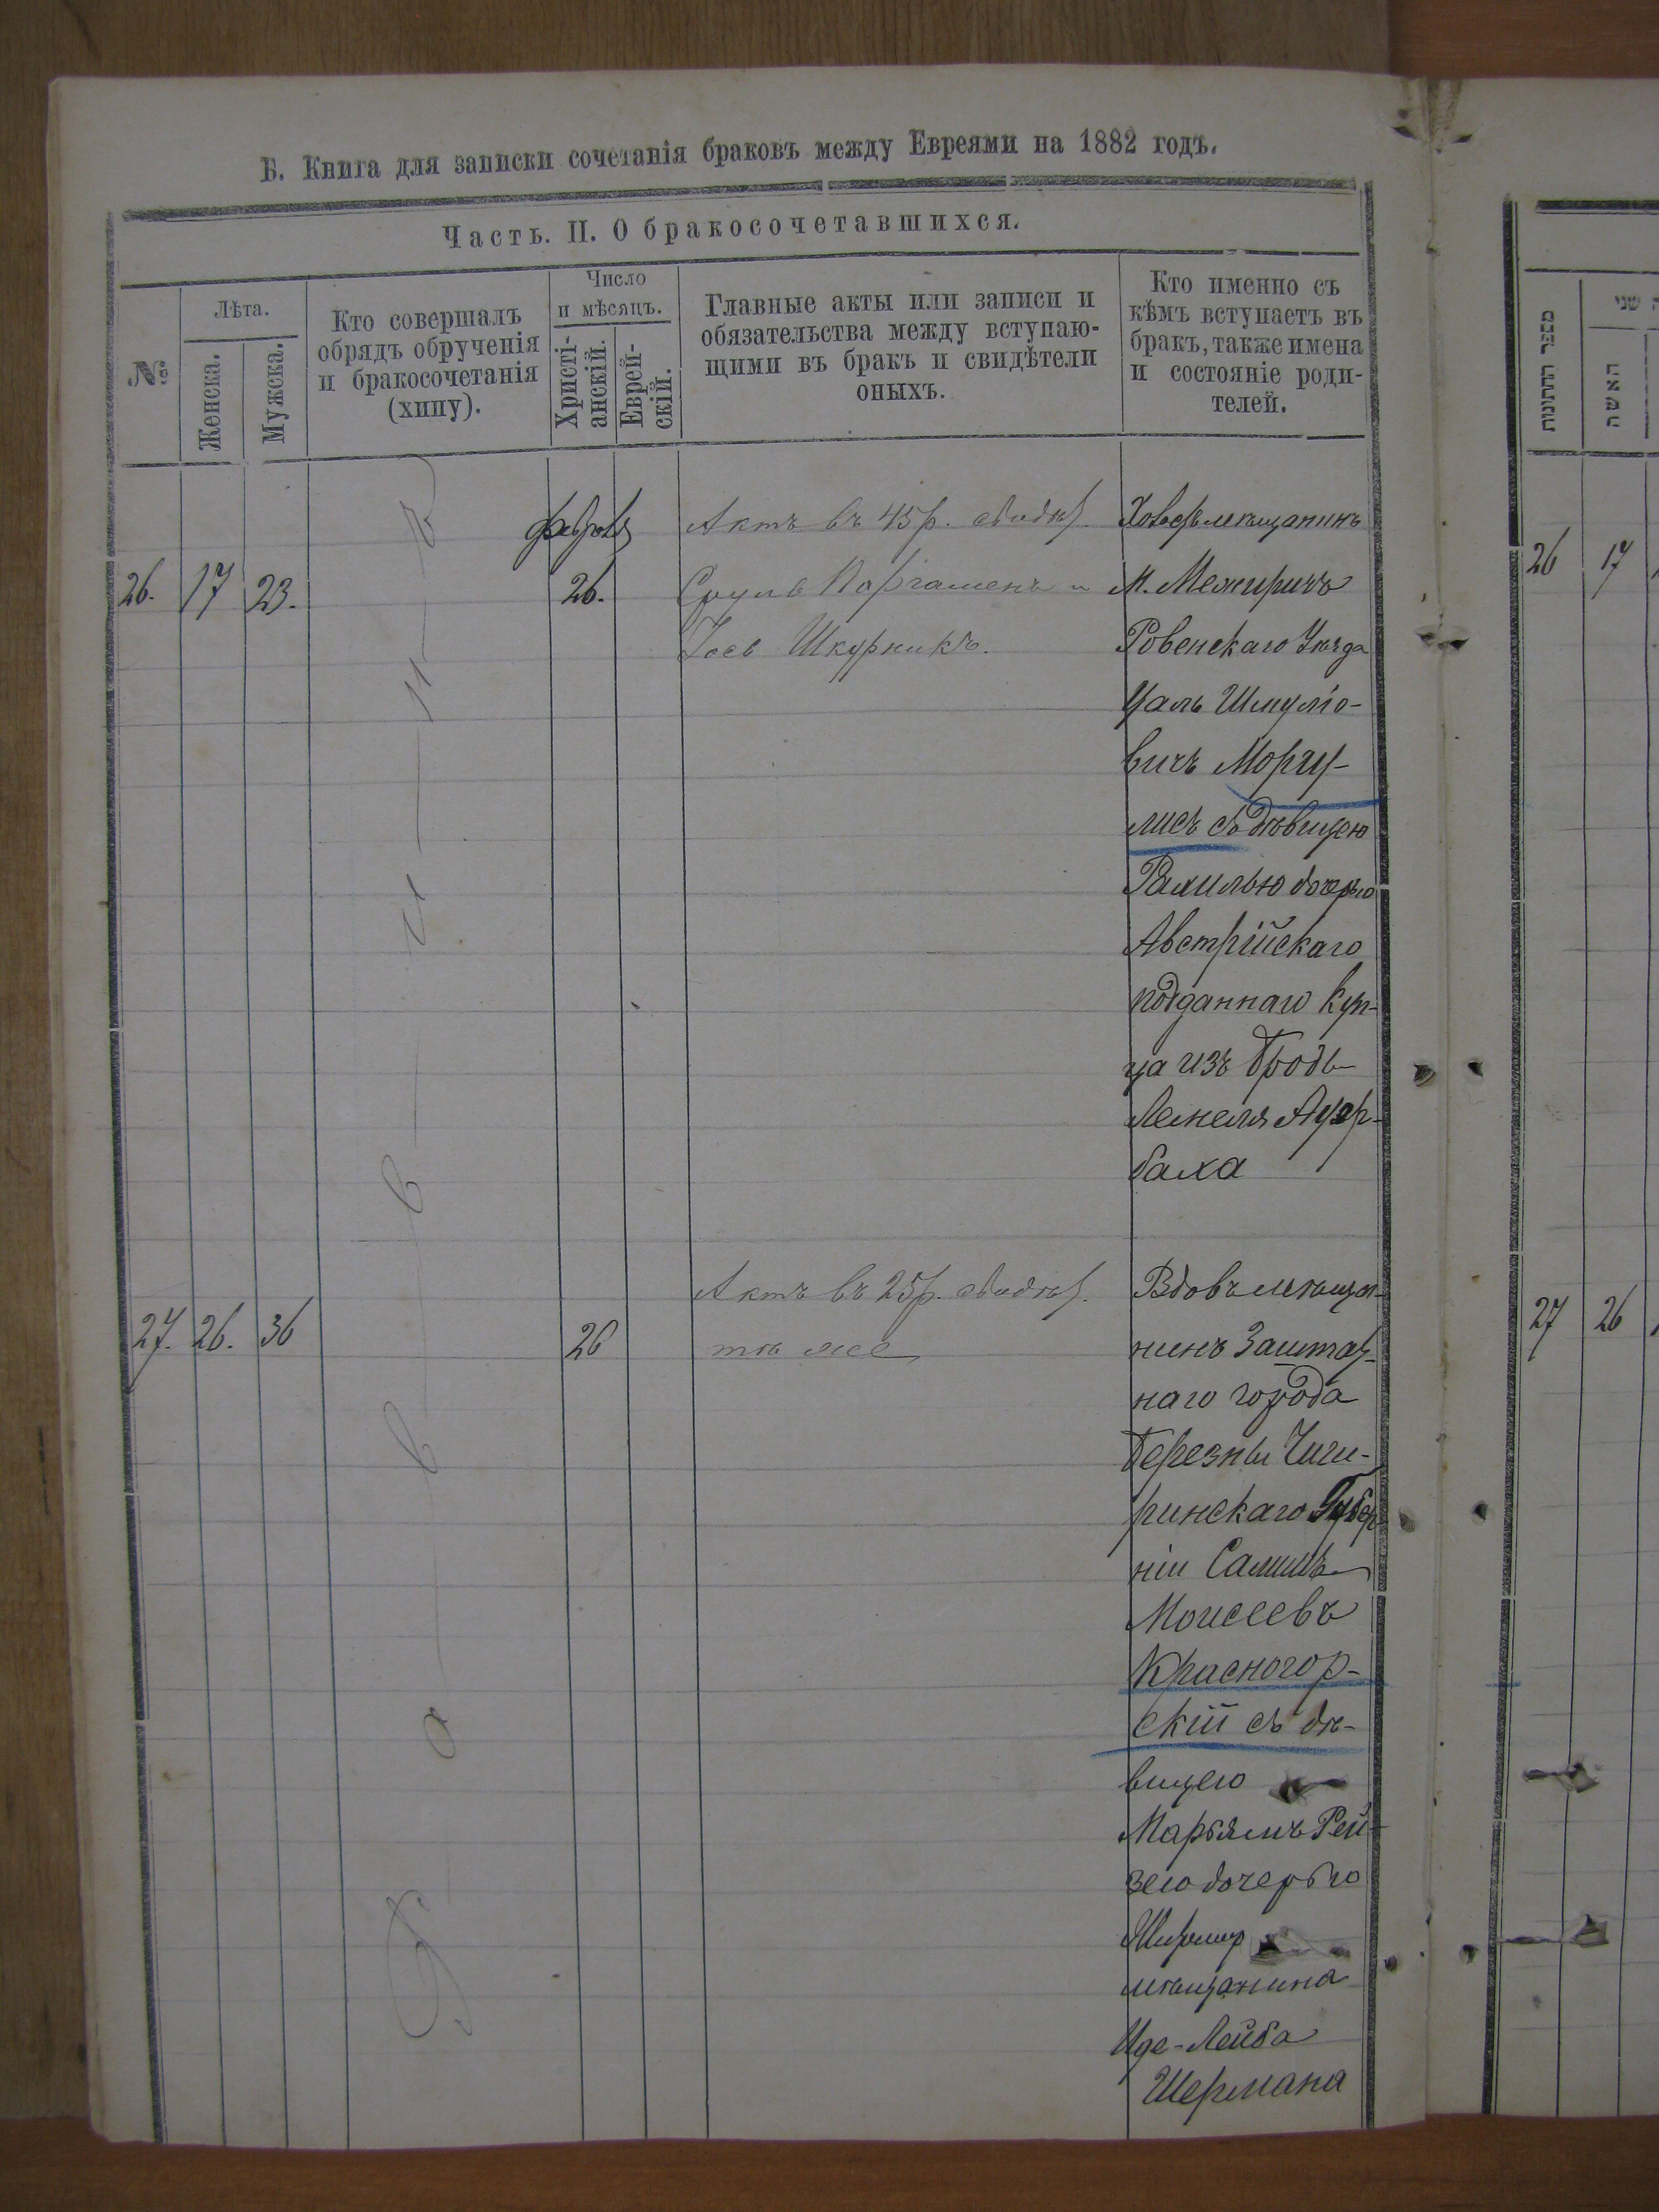 Б. Книга для записки сочетанія браковъ между Евреями на 1882 годъ.
Часть. II. О бракосочетавшихся.
№
Лѣта.
Женска.
Мужска.
Кто совершалъ
обрядъ обрученія
и бракосочетанія
(хипу).
Число
и мѣсяцъ.
Христі-
анскій.
Еврей-
скій.
Главные акты или записи и
обязательства между вступаю-
щими въ бракъ и свидѣтели
оныхъ.
Кто именно съ
кѣмъ вступаетъ въ
бракъ, также имена
и состояніе роди-
телей.
26. 17 23.
26.
Актъ въ 45 р. свидѣт.
Сруль Паргаменъ и
Іось Шкурникъ.
мѣщанинъ
М. Межиричъ
Ровенскаго Уѣзда
Цаль Шмуліо-
вичъ Моргу-
лисъ съ дѣвицею
Рахилью дочерью
Австрійскаго
подданнаго Куп-
ца изъ Бродъ
Ауэр-
баха
27. 26. 36
26
Актъ въ 25 р. свидѣт.
тѣ же
Вдовъ мѣща-
нинъ Заштат-
наго города
Березны Чиги-
ринскаго Губер-
ніи
Моисеевъ
Красногор-
скій съ дѣ-
вицею
Марьямъ Рей-
зею дочерью
мѣщанина
Иде-Лейба
Шермана
מספר החתונות
שני
האשה
26 17
27 26